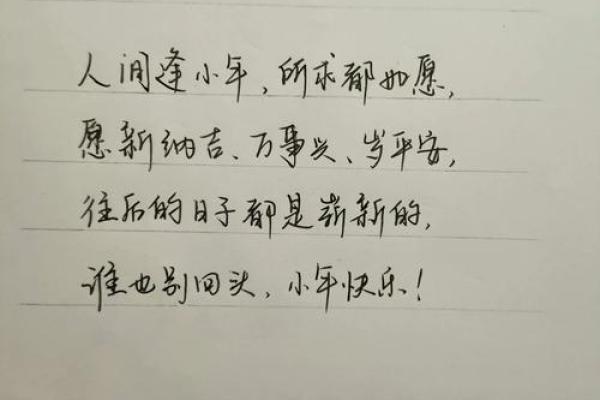 人间逢小年，所求都如愿，
愿新纳吉、万事兴、岁平安，
往后的日子都是崭新的，
谁也别回头，小年快乐！